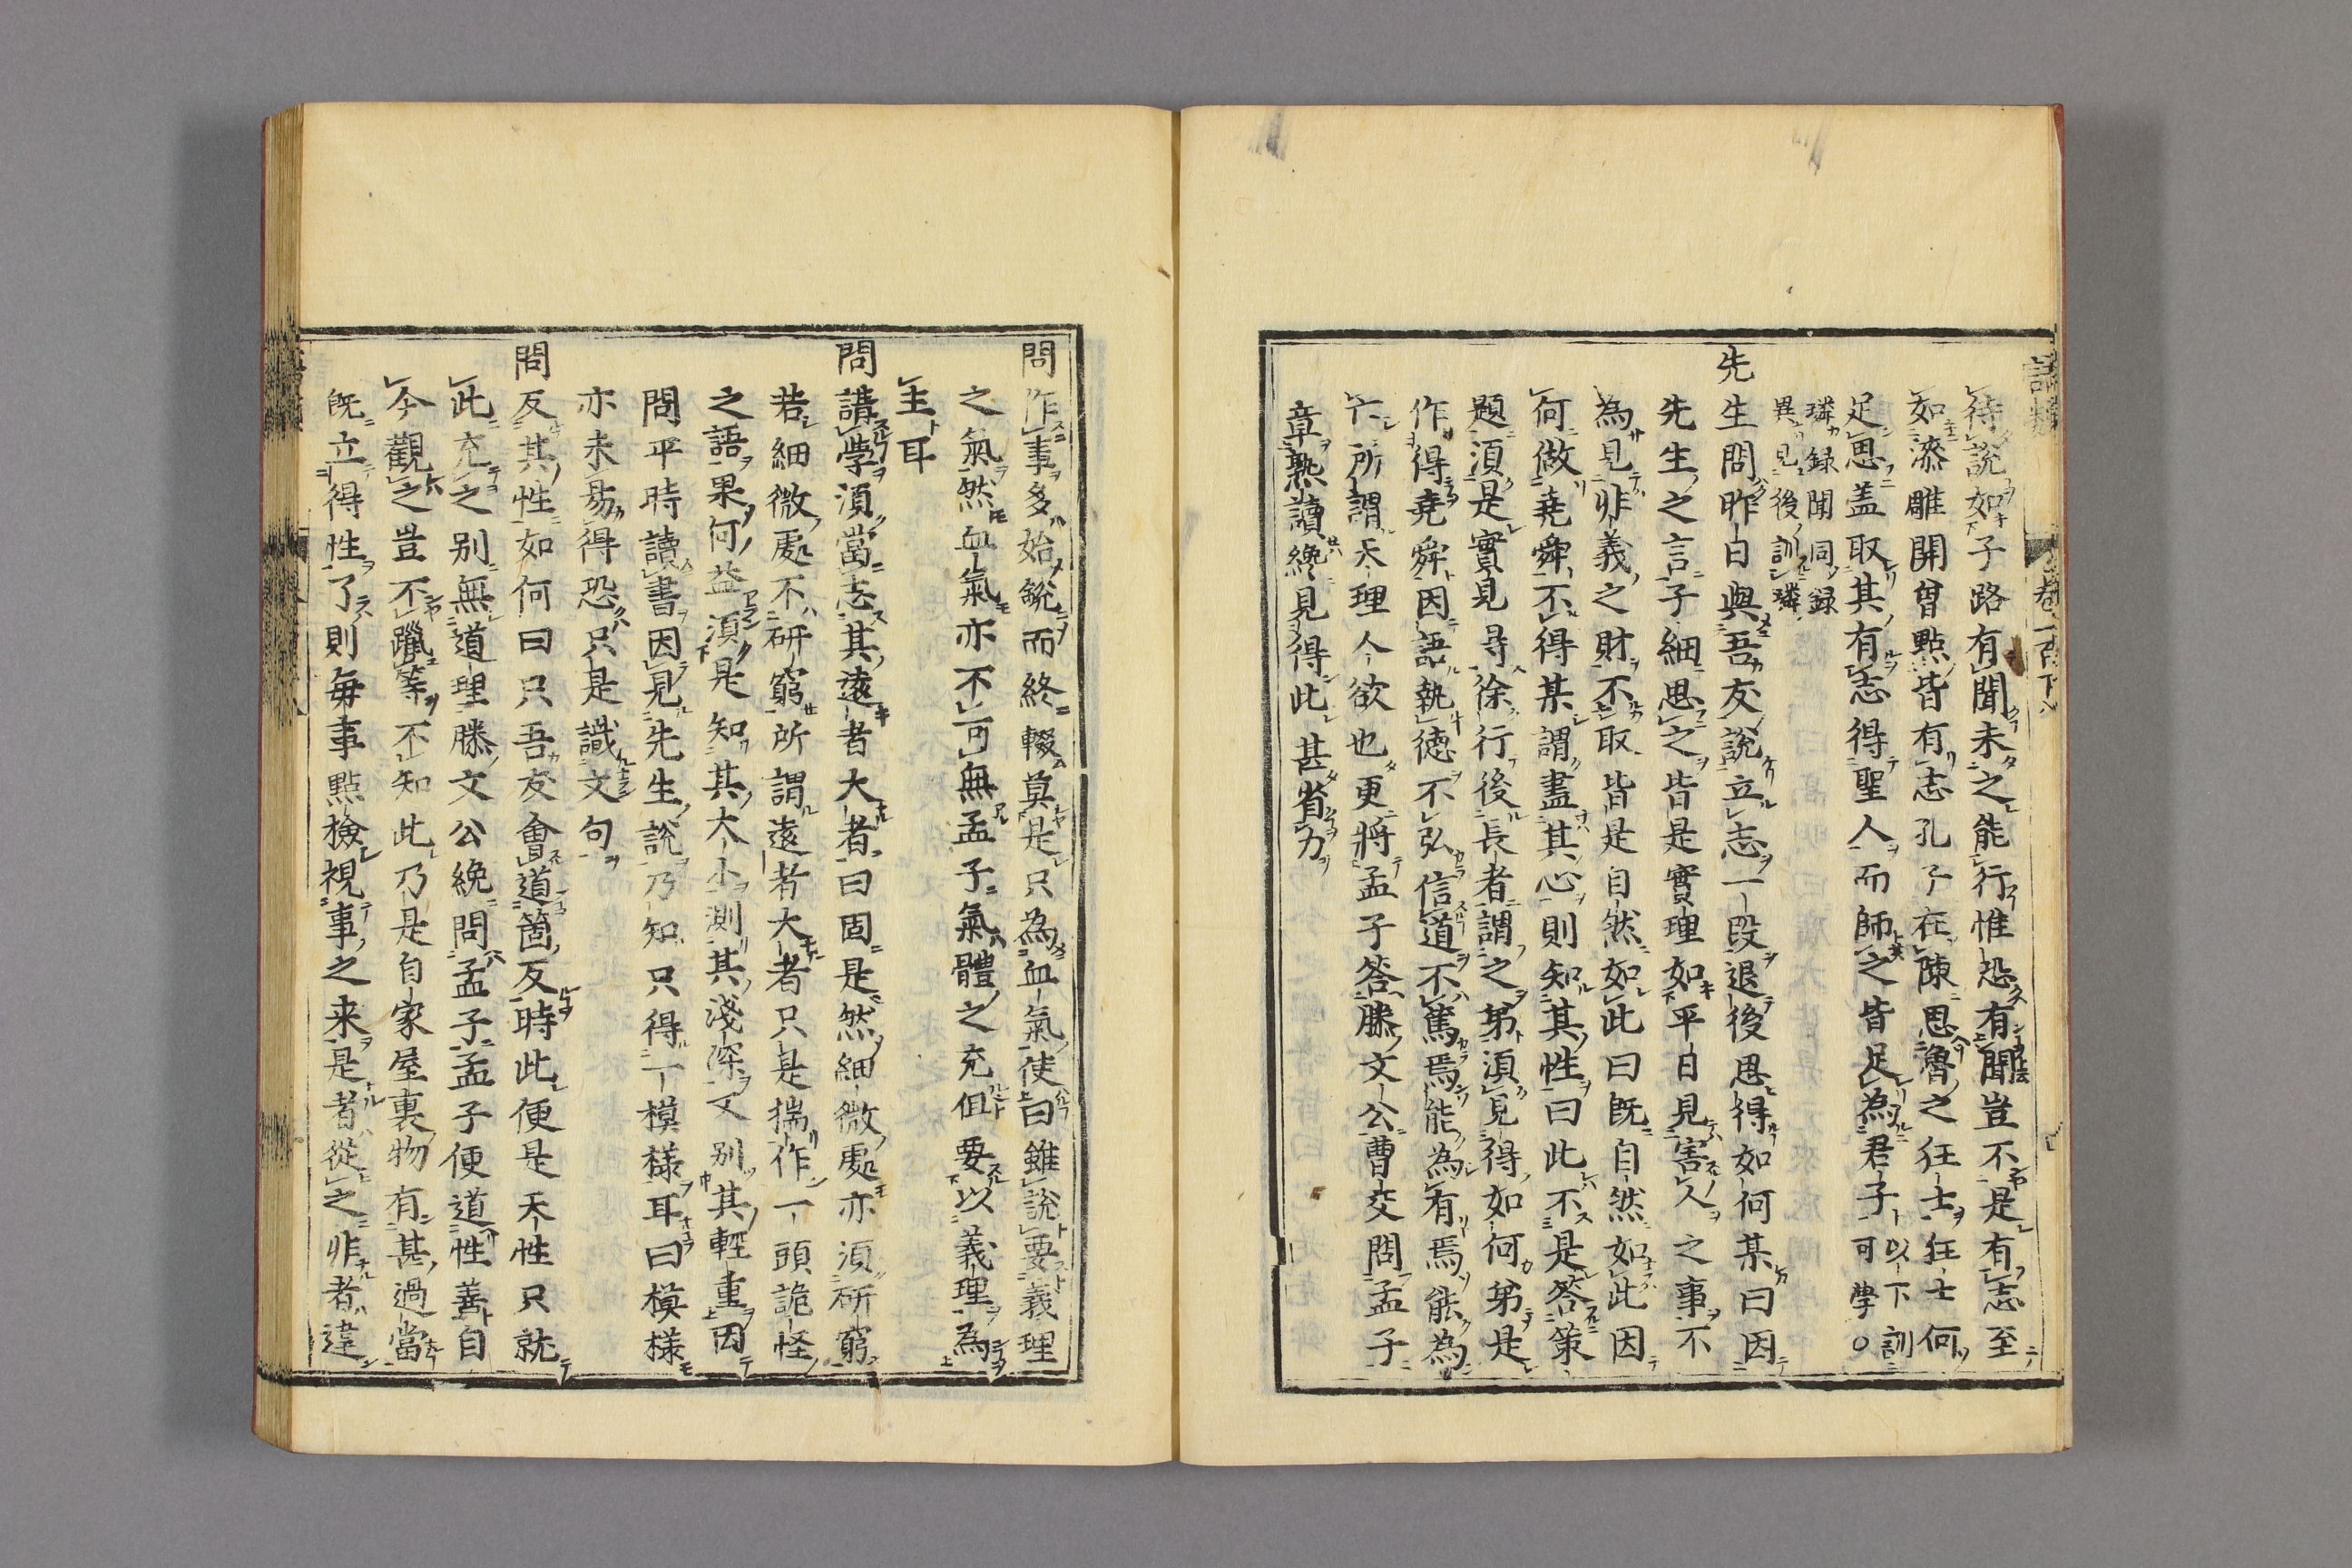 待說如子路有聞未之能行惟恐有聞豈不是有志至
如漆雕開曾點皆有志孔子在陳思魯之狂士狂士何
足思盖取其有志得聖人而師之皆足為君子以下訓可學○
璘録聞同録
異見後訓璘
先生問昨日與吾友說立志一段退後思得如何某曰因
先生之言子細思之皆是實理如平日見害人之事不
為見非義之財不取皆是自然如此曰既自然如此因
何做堯舜不得某謂盡其心則知其性曰此不是答策
題須是實見尋徐行後長者謂之弟須見得如何弟是
作得堯舜因語執徳不弘信道不篤焉能為有焉能為
亾所謂天理人欲也更將孟子答滕文公曹交問孟子
章熟讀纔見得此甚省力
問作事多始銳而終輟莫是只為血氣使曰雖說要義理
之氣然血氣亦不可無孟子氣體之充但要以義理為
主耳
問講學須當志其遠者大者曰固是然細微處亦須研窮
若細微處不研窮所謂遠者大者只是揣作一頭詭怪
之語果何益須是知其大小測其淺深又别其輕重因
問平時讀書因見先生說乃知只得一模樣耳曰模樣
亦未易得恐只是識文句
問反其性如何曰只吾友會道箇反時此便是天性只就
此充之别無道理滕文公纔問孟子孟子便道性善自
今觀之豈不躐等不知此乃是自家屋裏物有甚過當
既立得性了則每事點檢視事之来是者從之非者違